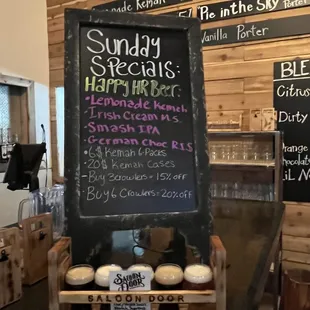 Lemonade Kemah
5% Pie in the Sky
Vanilla Porter
Sunday
Specials:
Happy HR Beer:
- Lemonade Kemah
- Irish Cream M.S.
- Smash IPA
- German Choc R.I.S
- 6$ Kemah 6 Packs
- 20$ Kemah Cases
- Buy 3 Crowlers = 15% off
- Buy 6 Crowlers = 20% off
BLE
Citrus
Dirty
Orange
Chocolate
Lil No
SALOON
DOOR
SALOON DOOR